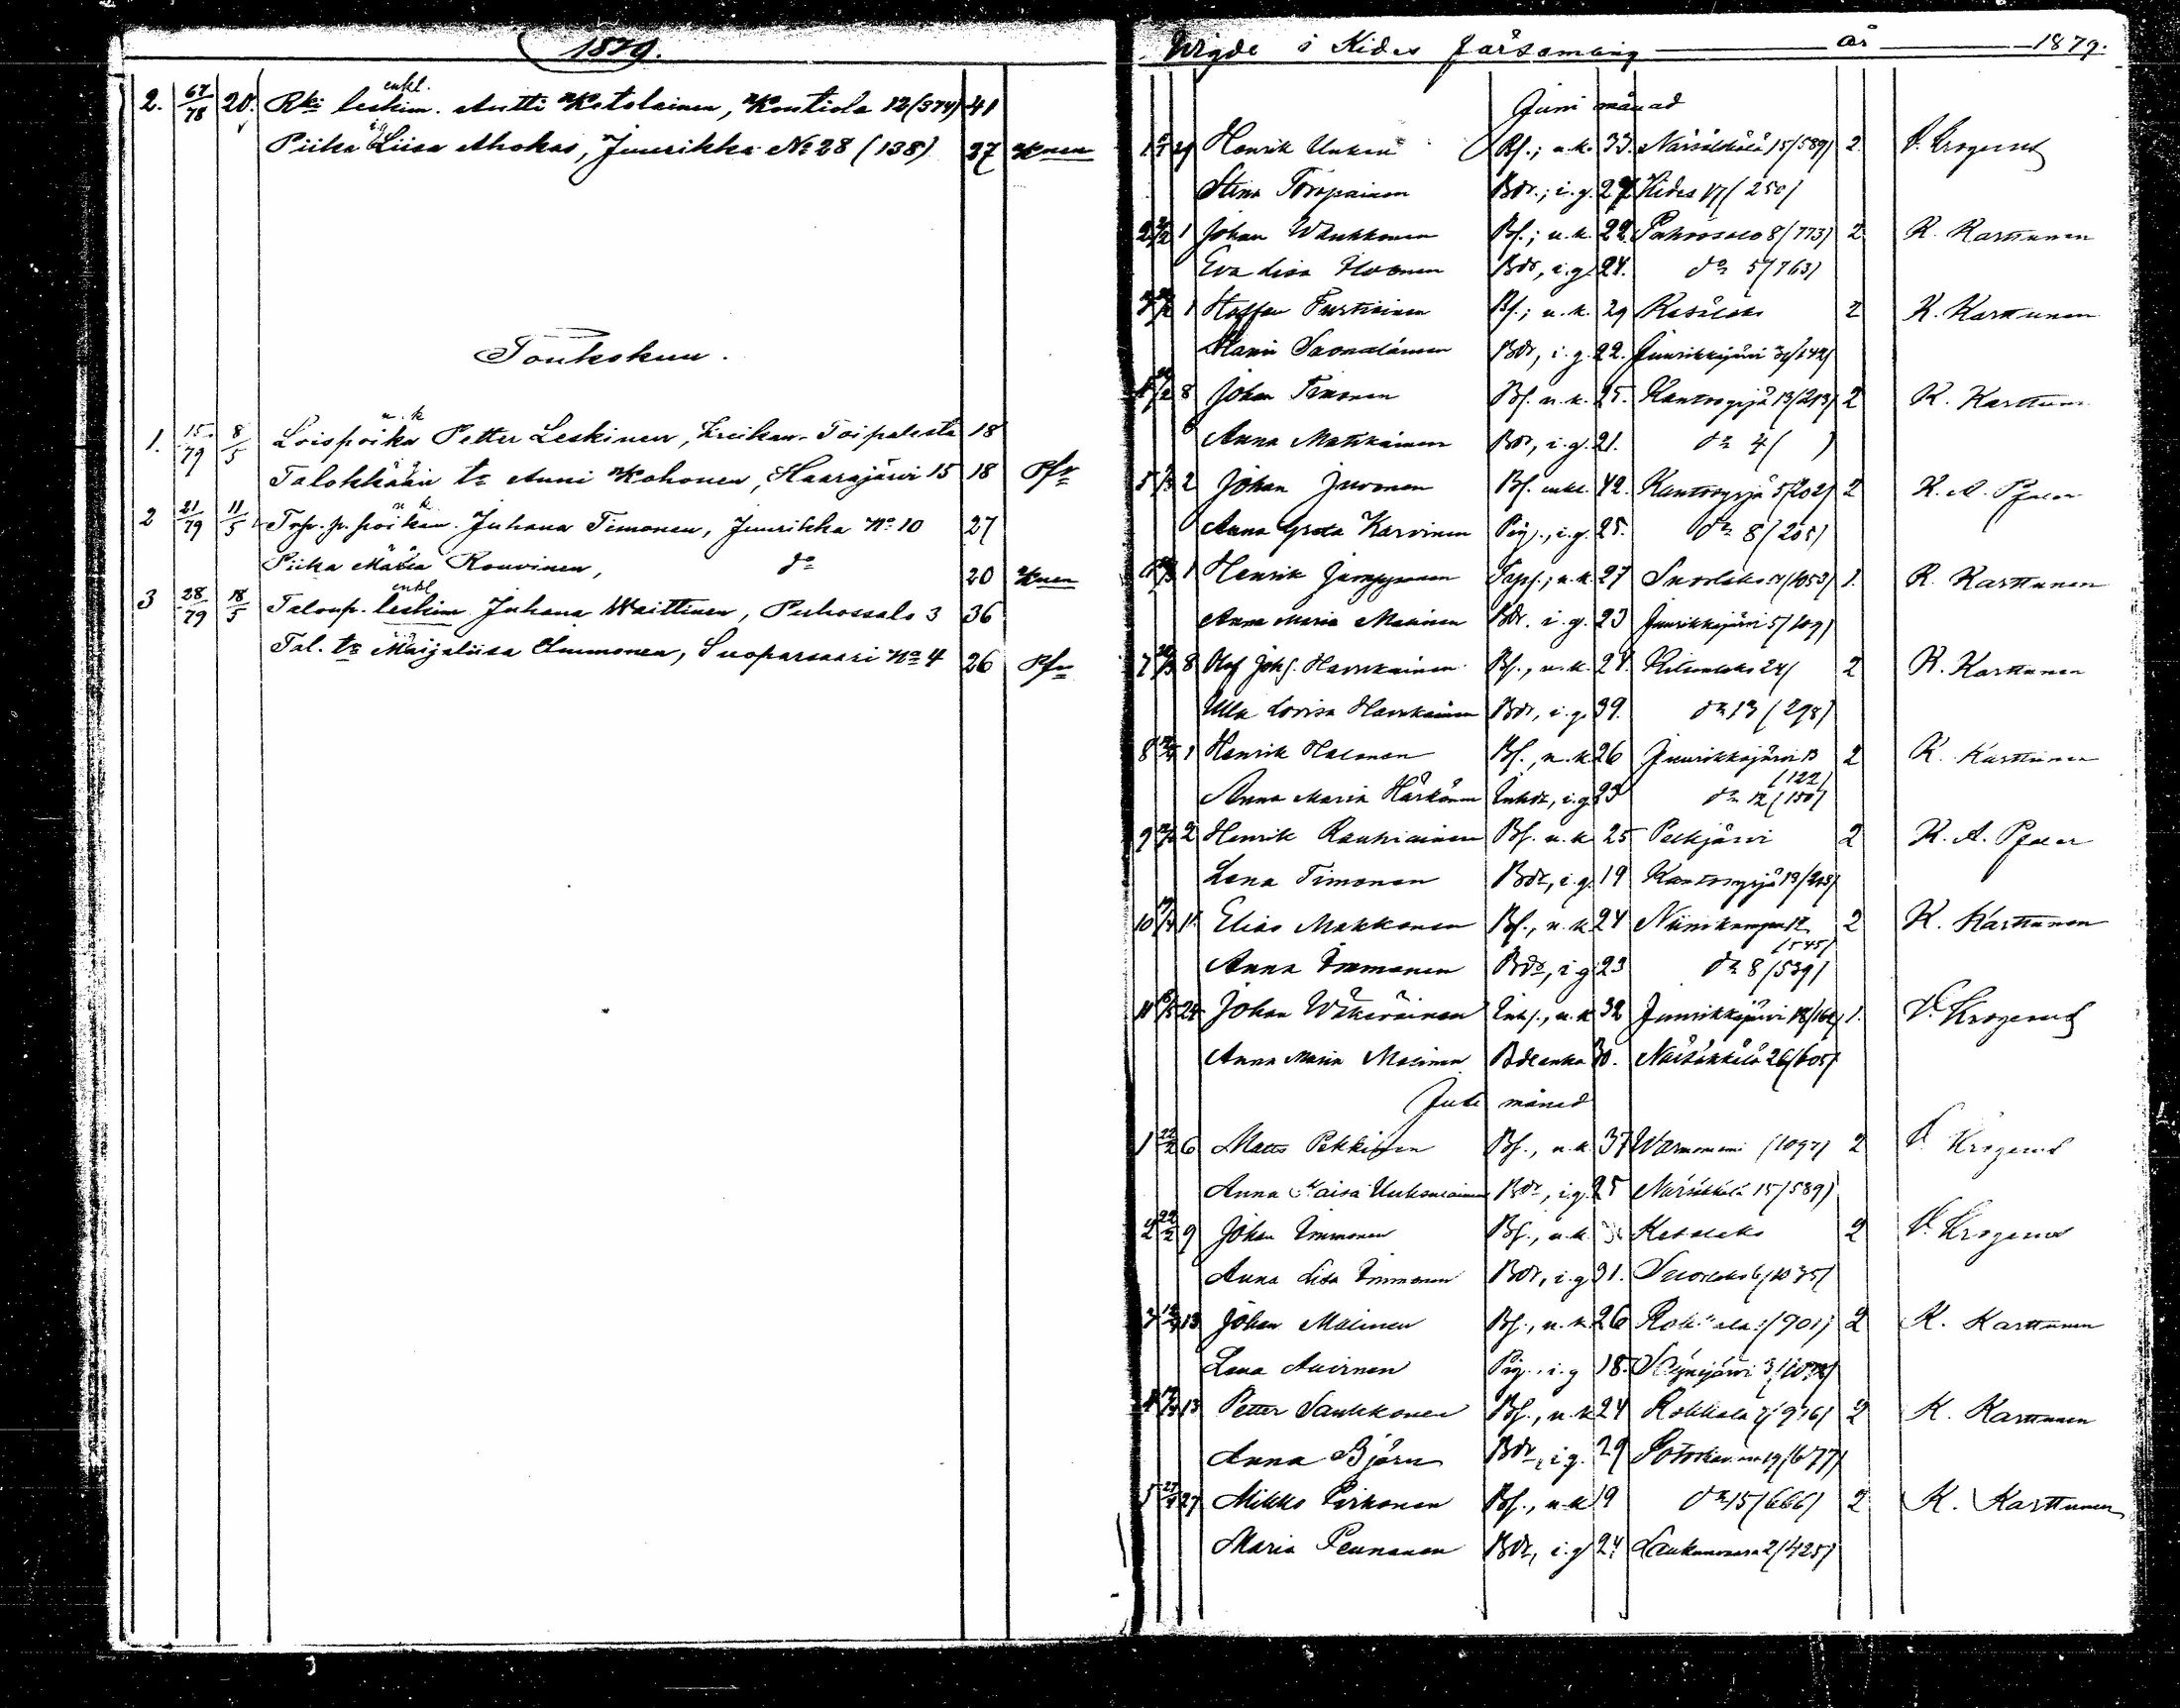 1879.
enkl.
2. 67/78 20. Rki leskim. Antti Kotolainen, Kontiola 12 (374) 41
i.g
Piika Liisa Ahokas, Juurikka No 28 (138) 27 Knen
Toukokuu.
n. k
1. 15/79 8/5 Loispoika Petter Leskinen, Toipalasta 18
Talokkään tr Anni Kohonen, Haarajärvi 15 18 Pfr
n k
2 21/79 11/5 Juhana Timonen, Juurikka No 10 27
Piika Maria Rouvinen, do 20 Knen
enkl
3 28/79 18/5 Taloup. leskim. Juhana Waittinen, Puhossalo 3 36
Tal. tr Maijaliisa Immonen, Suoparsaari No 4 26 Pfr
Wigde i Kides församling år 1879.
Juni månad
1 29 Henrik Bf.; u.k. 33. Närsäkkälä 15/589) 2. V. Krogerus
Stina Toropainen Bdr.; i.g. 27 Kides 17 (250)
2 1 Johan Bf.; u.k. 22. Puhossalo 8/773) 2 K. Karttunen
Eva Lisa Ikonen Bdr, i.g. 24. do 5/763)
3 1 Staffan Bf.; u.k. 29 Kesälaks 2 K. Karttunen
Bdr, i.g. 22. Juurikkajärvi
4 8 Johan Timonen Bf. u.k. 25. Kantosyrjä 13/213) 2 K. Karttunen
Anna Matikainen Bdr, i.g. 21. do 4 ( )
5 2 Johan Juvonen Bf. enkl. 42. Kantosyrjä 5/202) 2 K. A. Pfaler
Anna Greta Karvinen Pig., i.g. 25. do 8 (205)
6 1 Henrik u.k. 27 Suorlaks (1053) 1. K. Karttunen
Anna Maria Malinen Bdr. i.g. 23 Juurikkajärvi 5/109)
7 8 Olof Johs. Havukainen Bf., u.k. 28. 24/ 2 K. Karttunen
Ulla Lovisa Havukainen Bdr, i.g. 39. do 13 (298)
8 1 Henrik Halonen Bf., u.k 26 Juurikkajärvi 13 (122) 2 K. Karttunen
Anna Maria Härkönen Inhdr, i.g 23 do 12 (150)
9 2 Henrik Rauhiainen Bf. u.k 25 Pelkjärvi 2 K. A. Pfaler
Lena Timonen Bdr, i.g. 19 Kantosyrjä 13/213)
10 15 Elias Makkonen Bf., u.k 24 Niinikumpu 12 (545) 2 K. Karttunen
Anna Immonen Bdr, i.g 23 do 8 (539)
11 24 Johan Wäkeväinen Inhs., u.k 32 Juurikkajärvi 1. V. Krogerus
Anna Maria Malinen Bdeenka 30. Närsäkkälä 26/605)
Juli månad
1 22/2 6 Matts Pekkinen Bf., u.k 37 Warmoniemi (1097) 2 V. Krogerus
Anna Kaisa Bdr, i.g. 25 Närsäkkälä 15/589)
2 22/2 9 Johan Immonen Bf., u.k. Kesälaks 2 V. Krogerus
Anna Lisa Immonen Bdr, i.g 31. Suorlaks 6/1035)
3 13 Johan Malinen Bf., u.k 26 (901) 2 K. Karttunen
Lena Pig. i.g 18.
4 13 Petter Saukkonen Bf., u.k 24 Rokkala 2 K. Karttunen
Anna Björn Bdr, i.g. 29 19/677)
5 27 Mikko Pirhonen Bf., u.k 19 do 15/666) 2 K. Karttunen
Maria Pennanen Bdr, i.g 24 Laukunvaara 2/425)